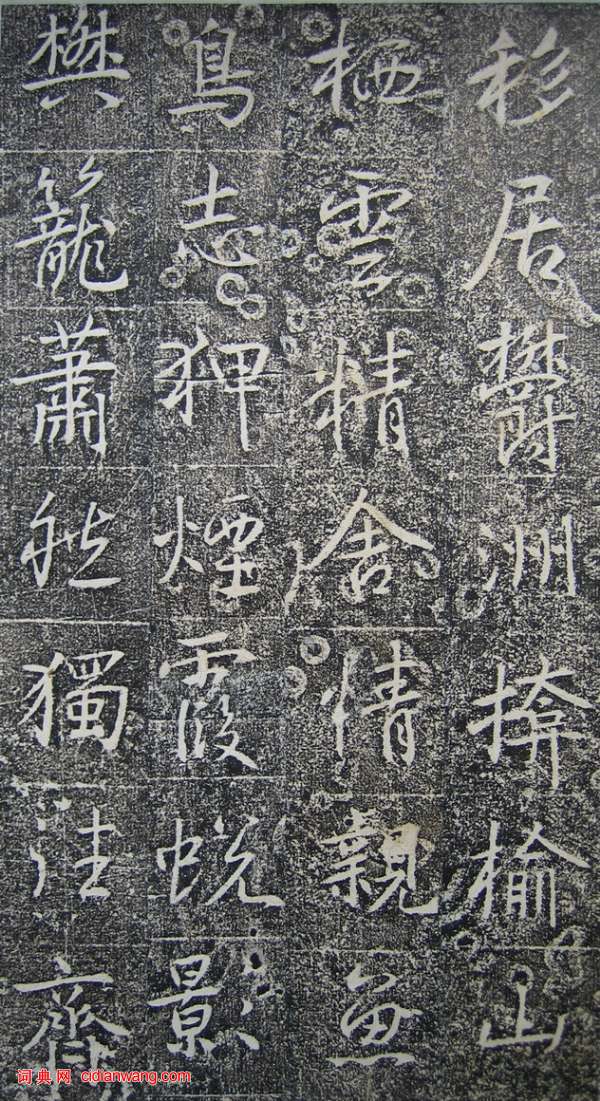 移居鬱洲揜榆山
栖雲精舍情親魚
鳥志狎煙霞蛻景
樊籠蕭然獨往齊
词典网 cidianwang.com